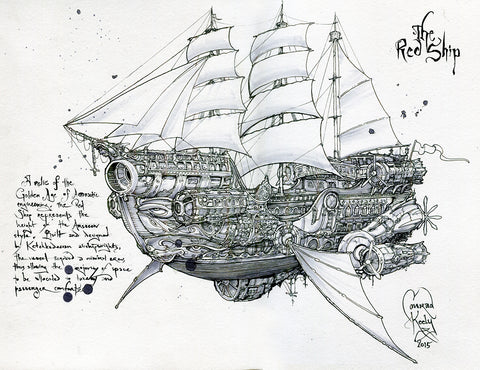 The
Red Ship
A relic of the
Golden Age of Aeronautic
engineering, the Red
Ship represents the
height of the American
style. Built and designed
by
the vessel required a minimal crew,
thus allowing the majority of space
to be allocated to luxury and
passenger comforts.
Conrad
Keely
2015